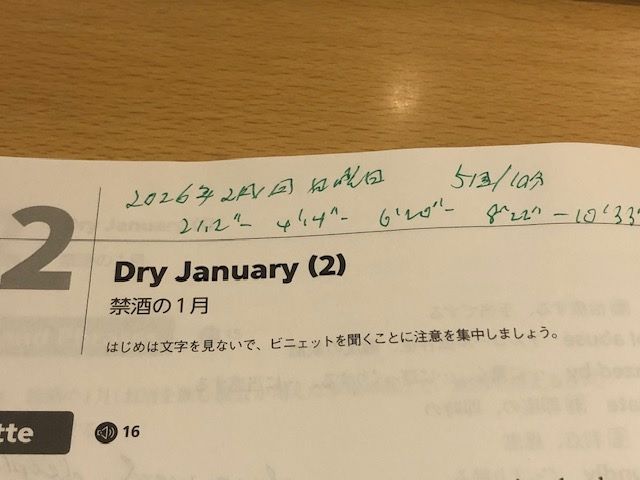 2026年2月1日 日曜日 5回/10分
2'12"- 4'14"- 6'20"- 8'22"-10'33
2
Dry January (2)
禁酒の1月
はじめは文字を見ないで、ビニェットを聞くことに注意を集中しましょう。
tte 16